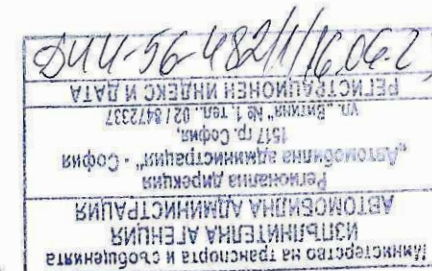 Министерство на транспорта и съобщенията
ИЗПЪЛНИТЕЛНА АГЕНЦИЯ
АВТОМОБИЛНА АДМИНИСТРАЦИЯ
Регионална дирекция
„Автомобилна администрация“ - София
1517 гр. София,
ул. „Витиня“ № 1, тел.: 02 / 8472337
РЕГИСТРАЦИОНЕН ИНДЕКС И ДАТА
-56-482/1/16.06.2